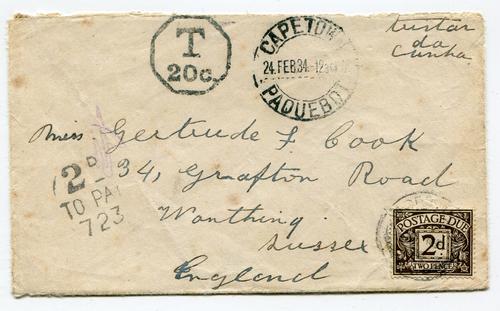 T
20c.
CAPETOWN
24.FEB.34.-12
PAQUEBOT
Tristan
da
Cunha
Miss Gertrude F Cook
34, Grafton Road
Worthing
Sussex
England
2D
TO PAY
723
POSTAGE DUE
2d
TWO PENCE